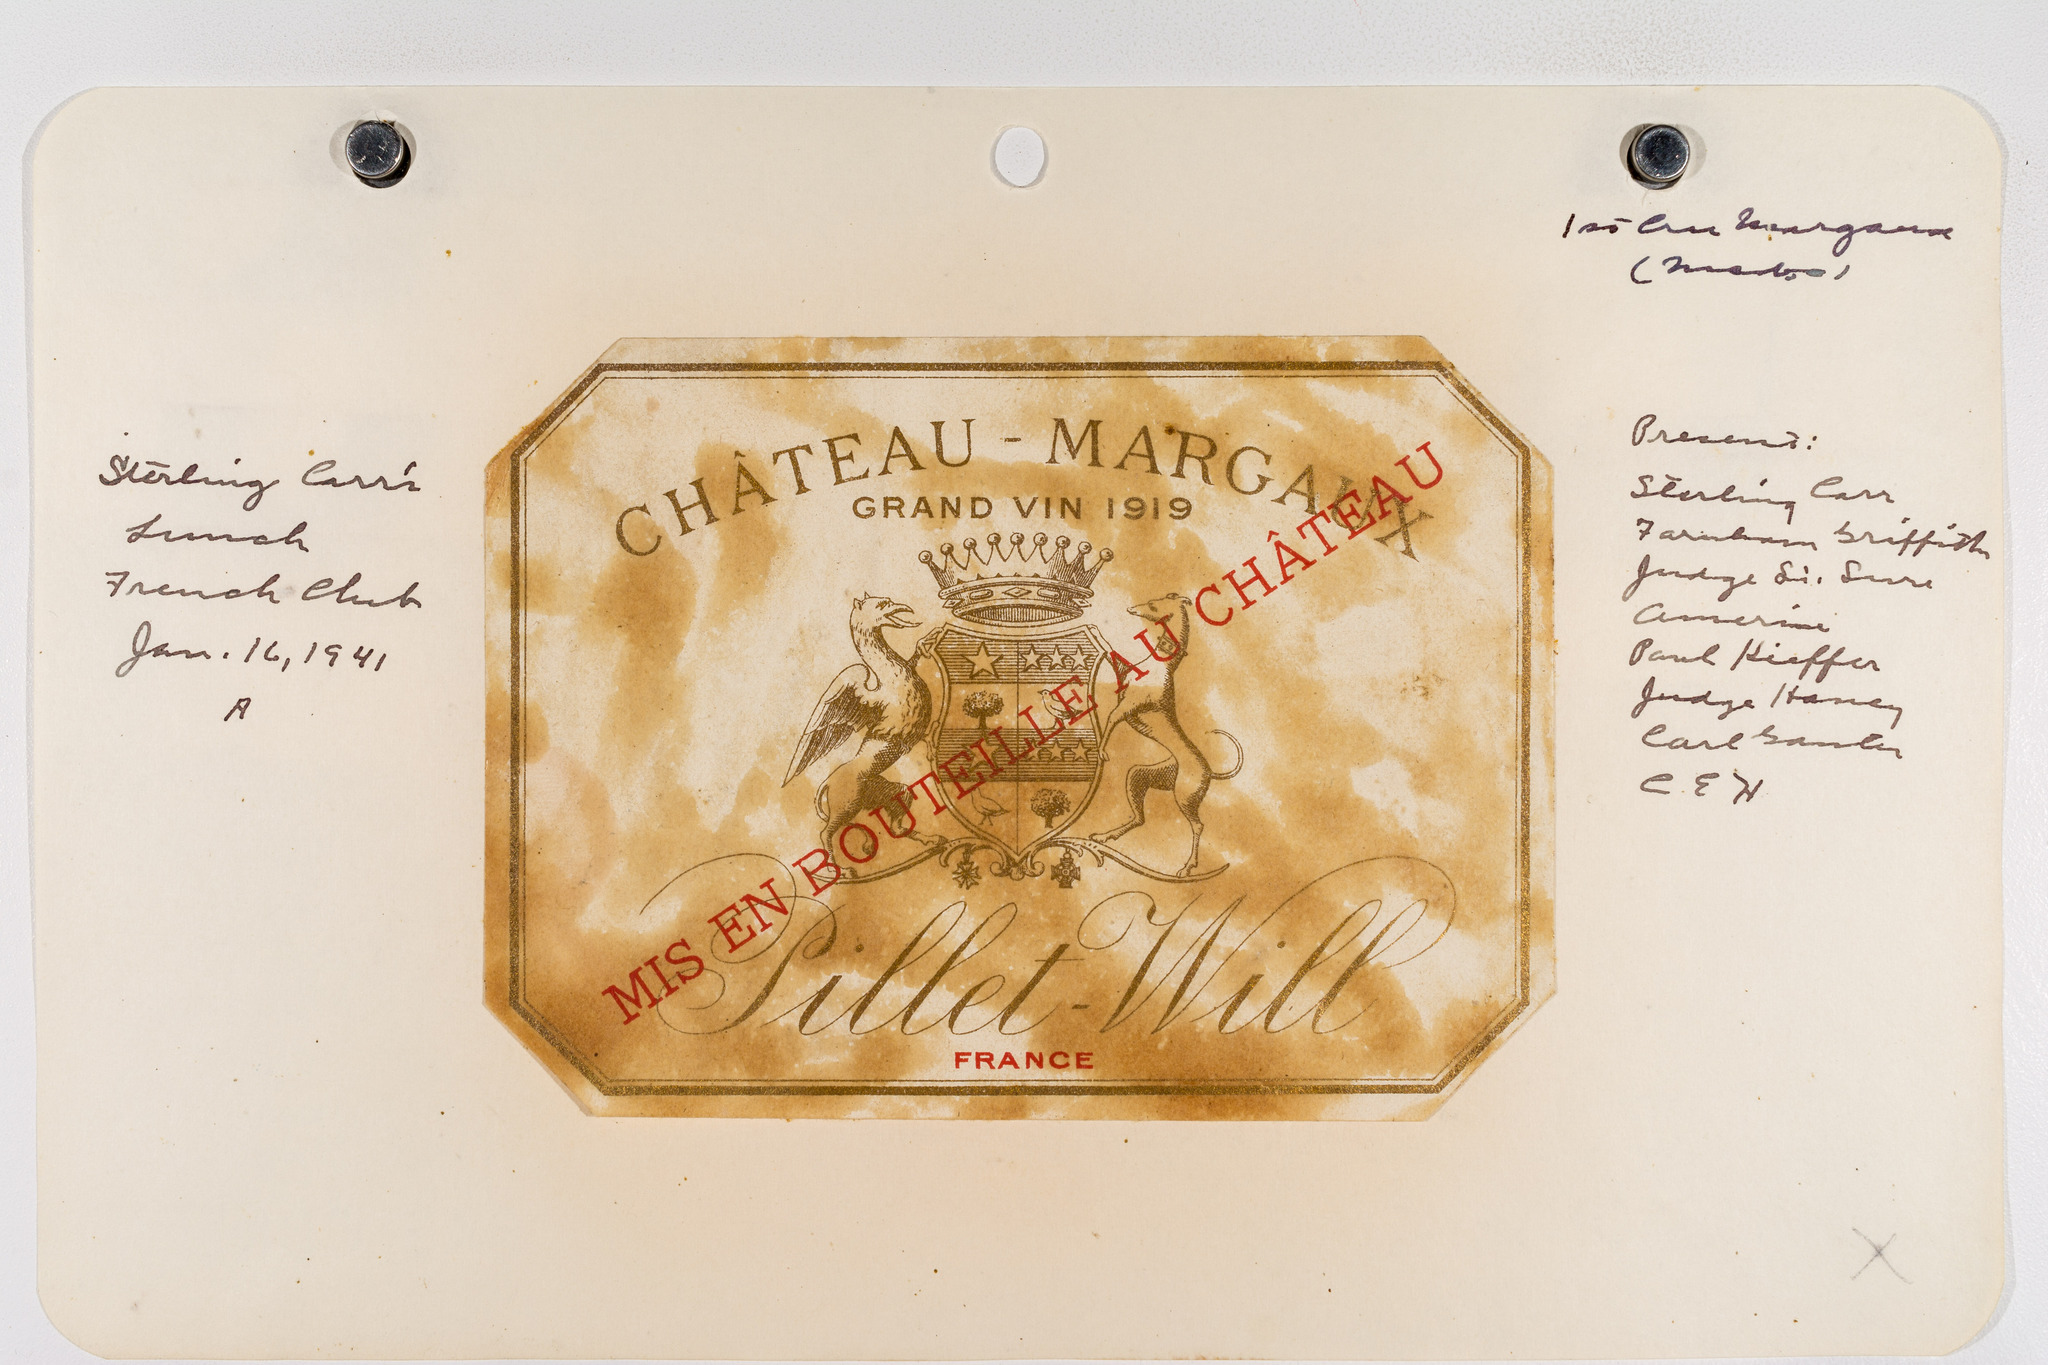 1st Cru Margaux
(Medoc)
Sterling Carr's
Lunch
French Club
Jan. 16, 1941
A
CHÂTEAU-MARGAUX
GRAND VIN 1919
MIS EN BOUTEILLE AU CHÂTEAU
Pillet-Will
FRANCE
Present:
Sterling Carr
Farnham Griffith
Judge St. Sure
Amerine
Paul Kieffer
Judge
Carl
C E H
X